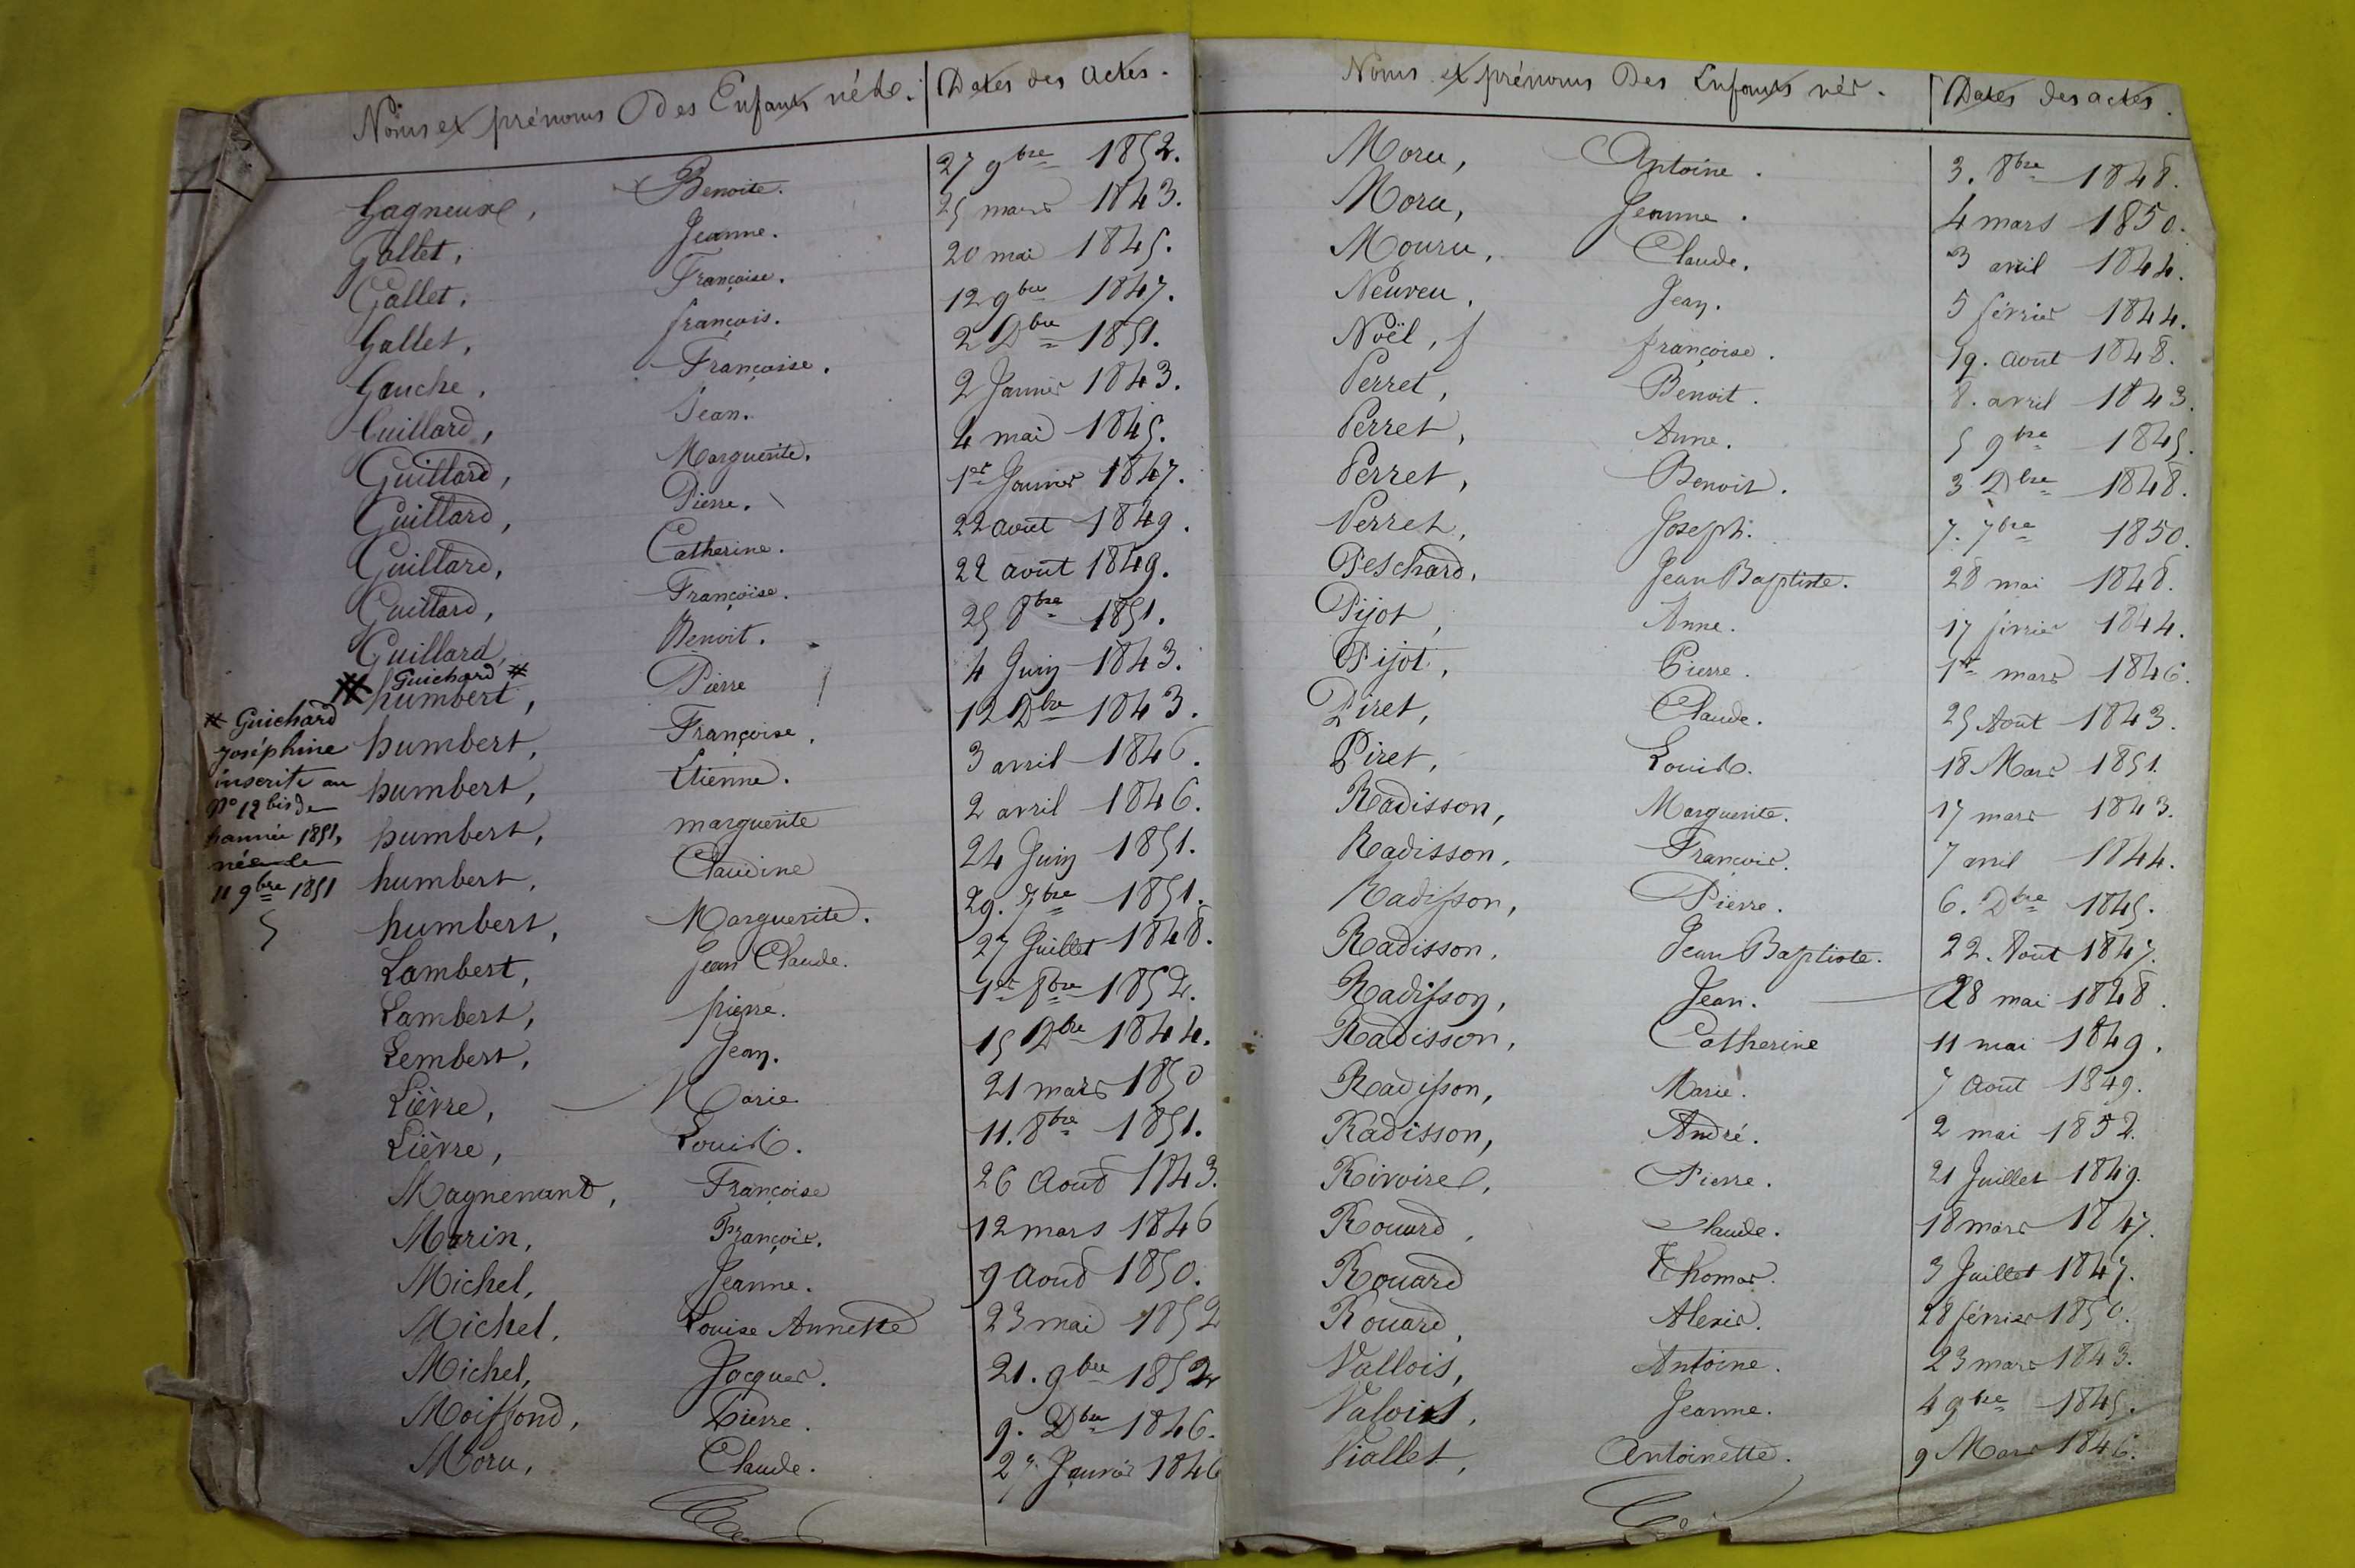 Noms et prénoms Des Enfants nés. Dates des actes.
Gagneux, Benoite. 27 9bre 1852.
Gallet, Jeanne. 25 mars 1843.
Gallet, Françoise. 20 mai 1845.
Gallet, françois. 12 9bre 1847.
Gauche, Françoise. 2 Dbre 1851.
Guillard, Jean. 2 Janvier 1843.
Guillard, Marguerite. 4 mai 1845.
Guillard, Pierre. 1er Janvier 1847.
Guillard, Catherine. 22 août 1849.
Guillard, Françoise. 22 août 1849.
Guillard, Benoit. 25 8bre 1851.
# Guichard #
humbert, Pierre 4 Juin 1843.
humbert, Françoise. 12 Dbre 1843.
humbert, Etienne. 3 avril 1846.
humbert, marguerite 2 avril 1846.
humbert, Claudine 24 Juin 1851.
humbert, Marguerite. 29. 7bre 1851.
Lambert, Jean Claude. 27 Juillet 1848.
Lambert, pierre. 1er 8bre 1852.
Lembert, Jean. 15 Dbre 1844.
Lièvre, Marie 21 mars 1850
Lièvre, Louis. 11. 8bre 1851.
Magnenand, Françoise 26 Aoud 1843.
Marin, François. 12 mars 1846
Michel, Jeanne. 9 Aoud 1850.
Michel, Louise Annette 23 mai 1852
Michel, Jacques. 21. 9bre 1852
Moissond, Pierre. 9. Dbre 1846.
Moru, Claude. 27 Janvier 1846
# Guichard
Joséphine
inscrite au
No 12 bis de
l'année 1851,
née le
11 9bre 1851
Noms et prénoms Des Enfants nés. Dates des actes.
Moru, Antoine. 3. 8bre 1848.
Moru, Jeanne. 4 mars 1850.
Mouru, Claude. 3 avril 1844.
Neuveu, Jean. 5 février 1844.
Noël, f françoise. 19. août 1848.
Perret, Benoit. 8. avril 1843.
Perret, Anne. 5 9bre 1845.
Perret, Benoit. 3 Dbre 1848.
Perret, Joseph. 7. 7bre 1850.
Peschard, Jean Baptiste. 28 mai 1848.
Pijot, Anne. 17 février 1844.
Pijot, Pierre. 1er mars 1846.
Piret, Claude. 25 Août 1843.
Piret, Louis. 18 Mars 1851.
Radisson, Marguerite. 17 mars 1843.
Radisson, François. 7 avril 1844.
Radisson, Pierre. 6. Dbre 1845.
Radisson, Jean Baptiste. 22. Août 1847.
Radisson, Jean. 28 mai 1848.
Radisson, Catherine 11 mai 1849.
Radisson, Marie. 7 Août 1849.
Radisson, André. 2 mai 1852.
Rivoire, Pierre. 21 Juillet 1849.
Rouard, Claude. 18 mars 1847.
Rouard Thomas. 3 Juillet 1847.
Rouard, Alexis. 28 février 1850.
Vallois, Antoine. 23 mars 1843.
Valois, Jeanne. 4 9bre 1845.
Viallet, Antoinette. 9 Mars 1846.